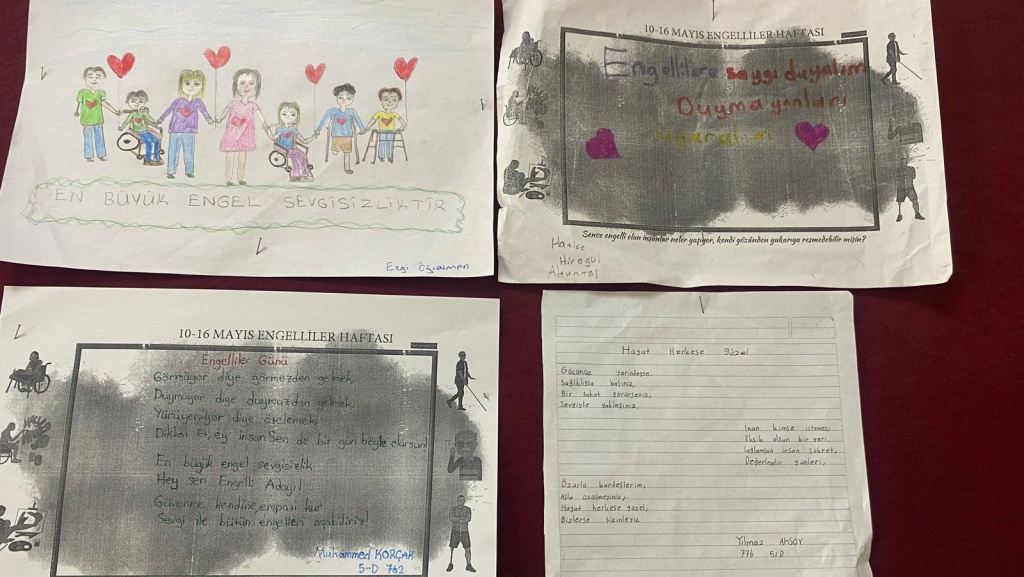 EN BÜYÜK ENGEL SEVGİSİZLİKTİR
Ezgi Öğretmen
10-16 MAYIS ENGELLİLER HAFTASI
Engellilere saygı duyalım
Duymayanları
Uyaralım
Sence engelli olan insanlar neler yaşıyor, kendi gözünden yukarıya resmedebilir misin?
Hatice
Hiragül
Altuntaş
10-16 MAYIS ENGELLİLER HAFTASI
Engelliler Günü
Görmüyor diye görmezden gelmek,
Duymuyor diye duymazdan gelmek,
Yürüyemiyor diye ötelemek,
Dikkat Et, ey insan Sen de bir gün böyle olursun!
En büyük engel sevgisizlik
Hey sen Engelli Adayı!
Güvenme kendine, empati kur
Sevgi ile bütün engelleri aşabiliriz!
Muhammed KORÇAK
5-D 762
Hayat Herkese güzel
yerindeyse,
Sağlıklıysa
Bir sakat görürseniz,
Sevgiyle yaklaşınız,
İnan kimse istemez,
Eksik olsun bir yeri,
Sağlamsan insan şükret,
Değerlendir günleri,
Özürlü kardeşlerim,
Asla üzülmeyiniz,
Hayat herkese güzel,
Bizlerse sizinleyiz
Yılmaz AKSOY
776 5/D